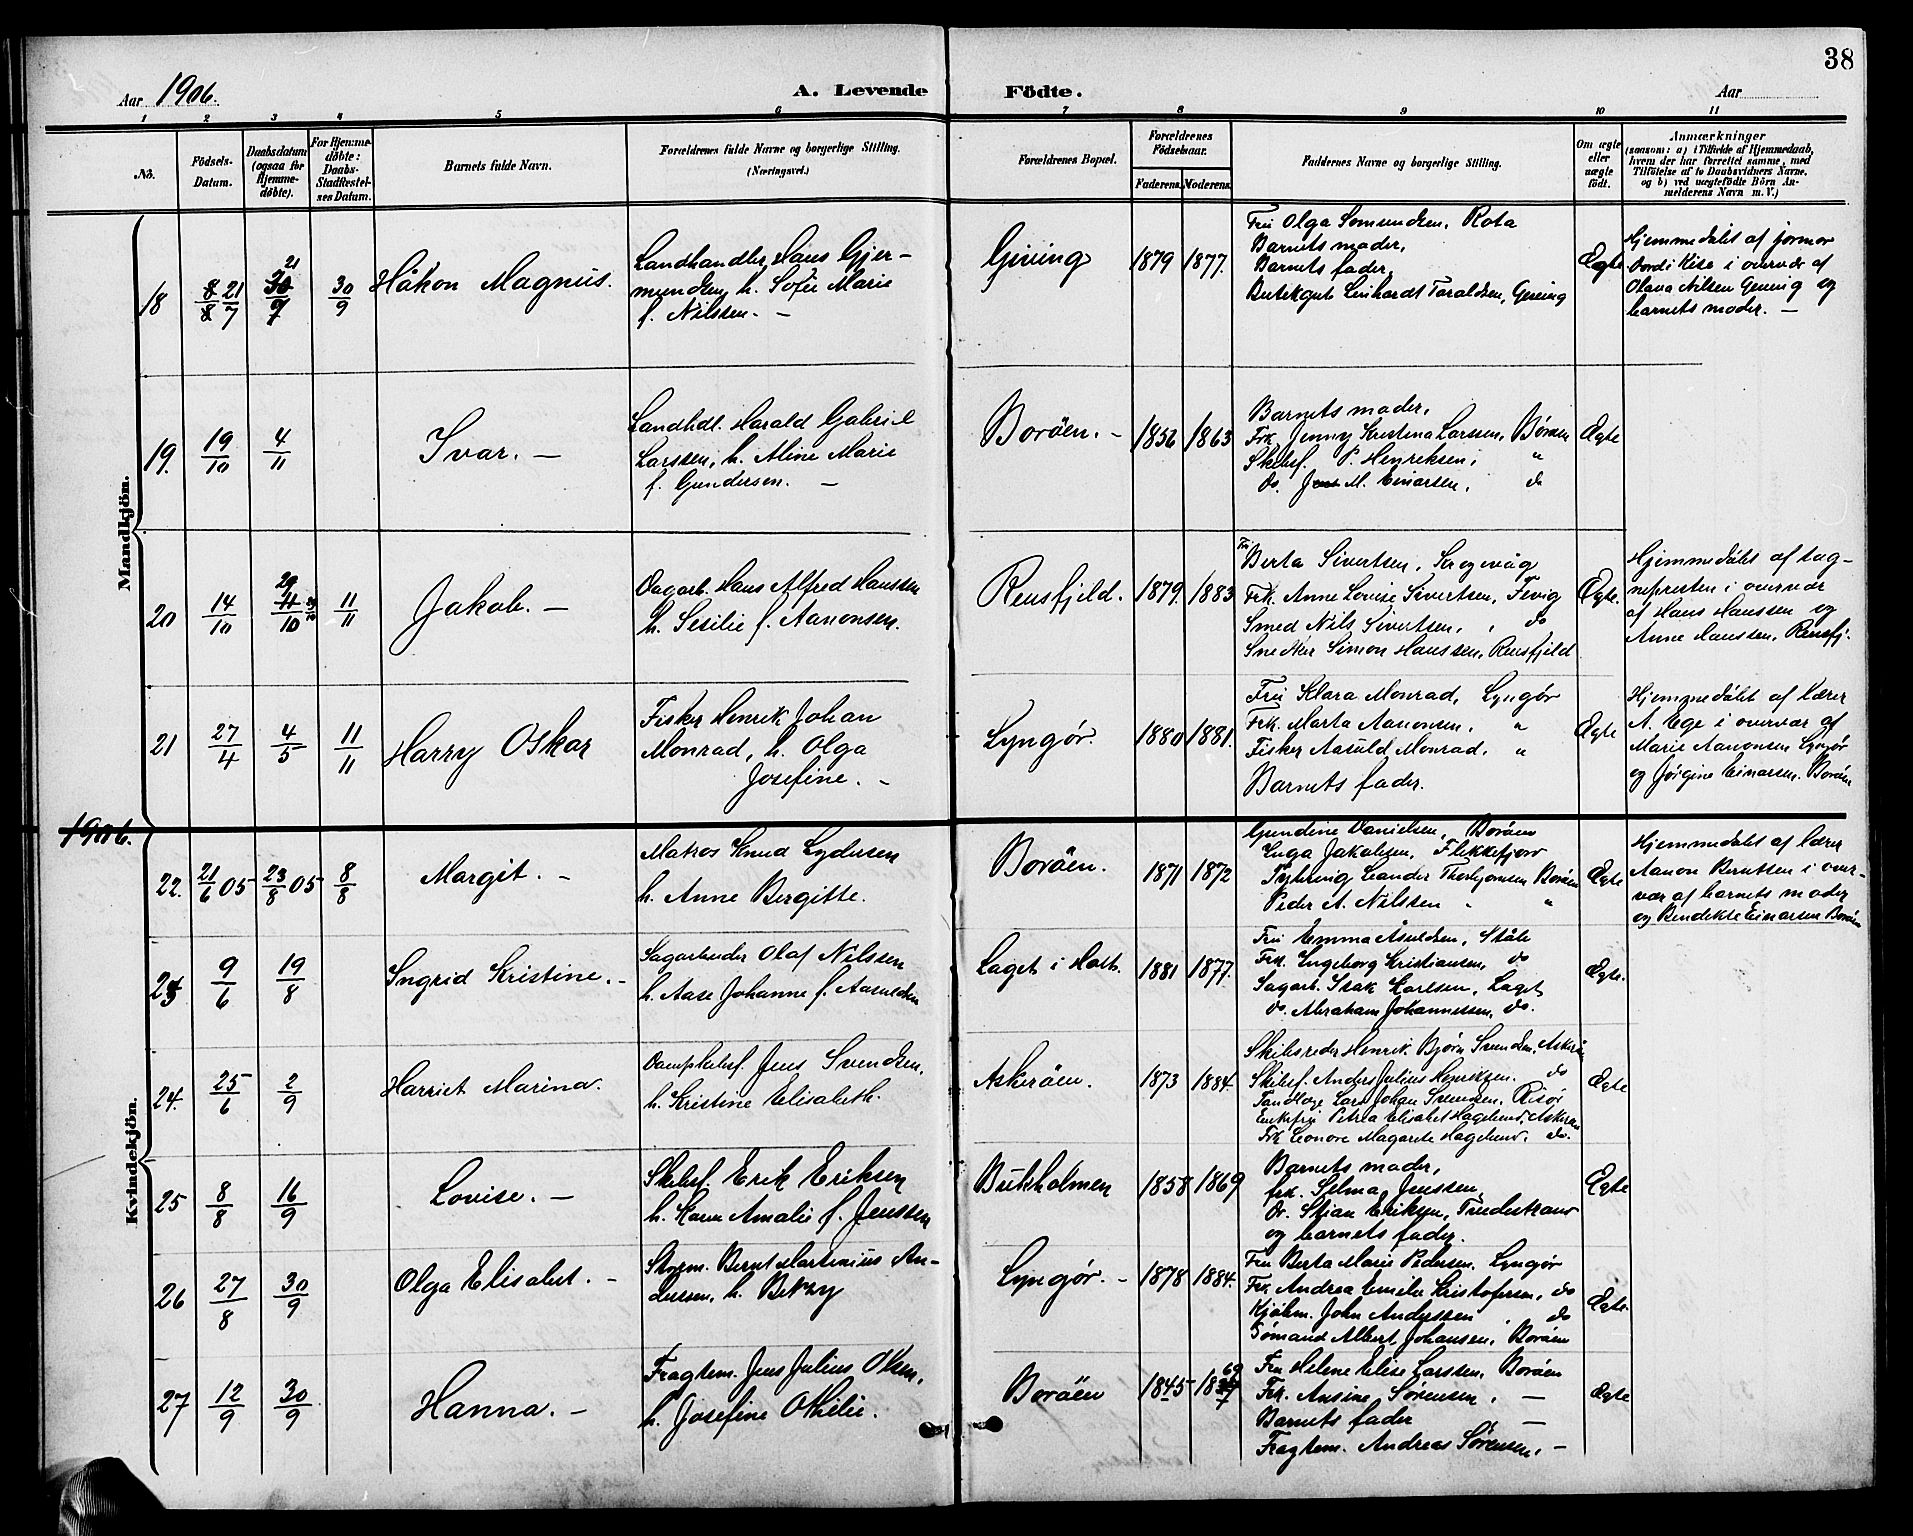 38
Aar 1906.
A. Levende Födte.
Aar
1 2 3 4 5 6 7 8 9 10 11
No.
Födsels-Datum.
Daabsdatum (ogsaa for Hjemme-döbte).
For Hjemme-döbte: Daabs-Stadfæstel-ses Datum.
Barnets fulde Navn.
Forældrenes fulde Navne og borgerlige Stilling. (Næringsvei.)
Forældrenes Bopæl.
Forældrenes Födselsaar.
Faderens. Moderens.
Faddernes Navne og borgerlige Stilling.
Om ægte eller uægte födt.
Anmærkninger
(saasom: a) i Tilfælde af Hjemmedaab,
hvem der har forrettet samme, med
Tilföielse af to Daabsvidners Navne,
og b) ved uægtefödte Börn An-
melderens Navn m. V.)
Mandkjön.
18
8/8 21/7
21
30/7
30/9
Håkon Magnus.
Landhandler Hans Gjer-
mundsen, h. Sofie Marie
f. Nilssen. —
Gjeving
1879 1877.
Fru Olga Somundsen, Rota
Barnets moder,
Barnets fader,
Butikgut Linhardt Taraldsen, Gjeving
Ægte
Hjemmedøbt af jormor
Kise i overvær af
Olava Nilsen Gjeving og
barnets moder. —
19.
19/10
4/11
Ivar. —
Landhdl. Harald Gabriel
Larssen, h. Aline Marie
f. Gundersen. —
Borøen. —
1856 1863
Barnets moder,
Frk. Jenny Kristina Larssen, Borøen
Skibsf. P. Henriksen, "
do. M. Einarsen, do
Ægte
20
14/10
29
11/10
11/11
Jakob. —
Dagarb. Hans Alfred Hanssen
h. Sesilie f. Aanonsen.
Rensfjeld.
1879. 1883
Fru
Berta Sivertsen,
Frk. Anne Lovise Sivertsen, Fevig
Smed Nils Sivertsen, do
Snekker Simon Hanssen, Rensfjeld
Ægte.
Hjemmedøbt af sog-
nepresten i overvær
af Hans Hanssen og
Anne Hanssen, Rensfj.
21
27/4
4/5
11/11
Harry Oskar
Fisker Henrik Johan
Monrad, h. Olga
Josefine. —
Lyngør.
1880 1881.
Fru Klara Monrad, Lyngør
Frk. Marta Aanonsen, "
Fisker Aasuld Monrad, "
Barnets fader.
Ægte
Hjemmedøbt af lærer
A. Ege i overvær af
Marie Aanonsen Lyngør
og Jørgine Einarsen. Borøen
1906.
Kvindekjön.
22.
21/6 05
23/8 05
8/8
Margit. —
Matros Knud Lydersen
h. Anne Bergitte.
Borøen.
1871 1872
Gundine Danielsen, Borøen
Inga Jakobsen, Flekkefjord
Leander Thorbjørnsen Borøen
Peder A. Nilssen "
Ægte
Hjemmedøbt af lærer
Aanon Berntsen i over-
vær af barnets moder
og Bendikte Einarsen Borøen
23
9/6
19/8
Ingrid Kristine. —
Sagarbeider Olaf Nilssen
h. Aase Johanne f. Aasuldsen
Laget i Holt.
1881 1877.
Fru Emma Asuldsen, Ståle
Frk. Ingeborg Kristiansen, do
Sagarb. Isak Karlsen, Laget
do. Abraham Johannessen, do.
Ægte.
24.
25/6
2/9
Harriet Marina.
Dampskibsf. Jens Svendsen,
h. Kristine Elisabeth.
Askerøen.
1873 1884.
Skibsreder Henrik Bjørn Svendsen, Askerøen
Skibsf. Anders Julius Henriksen. do
Tandlæge Lars Johan Svendsen, Risør
Enkefru Petrea Elisabet Hagelund, Askerøen
Frk Leonore Magarete Hagelund. do.
Ægte
25
8/8
16/9
Lovise. —
Skibsf. Erik Eriksen
h. Karen Amalie f. Jenssen
Bukholmen
1858 1869
Barnets moder,
frk. Selma Jenssen
Dr. Stian Eriksen, Tvedestrand
og barnets fader.
Ægte
26
27/8
30/9
Olga Elisabet. —
Styrm. Bernt Martinius An-
derssen, h. Betzy
Lyngør. —
1878 1884.
Fru Berta Marie Pedersen, Lyngør
Frk. Andrea Emilie Kristofersen, do
Kjøbm. John Anderssen, do
Sømand Albert Johansen, Borøen
Ægte.
27
12/9
30/9
Hanna. —
Fragtem. Jens Julius Olsen,
h. Josefine Othilie.
Borøen
1845 1869
Fru Helene Elise Larssen, Borøen
Frk. Ansine Sørensen, —
Barnets fader —
Fragtem. Andreas Sørensen, —
Ægte